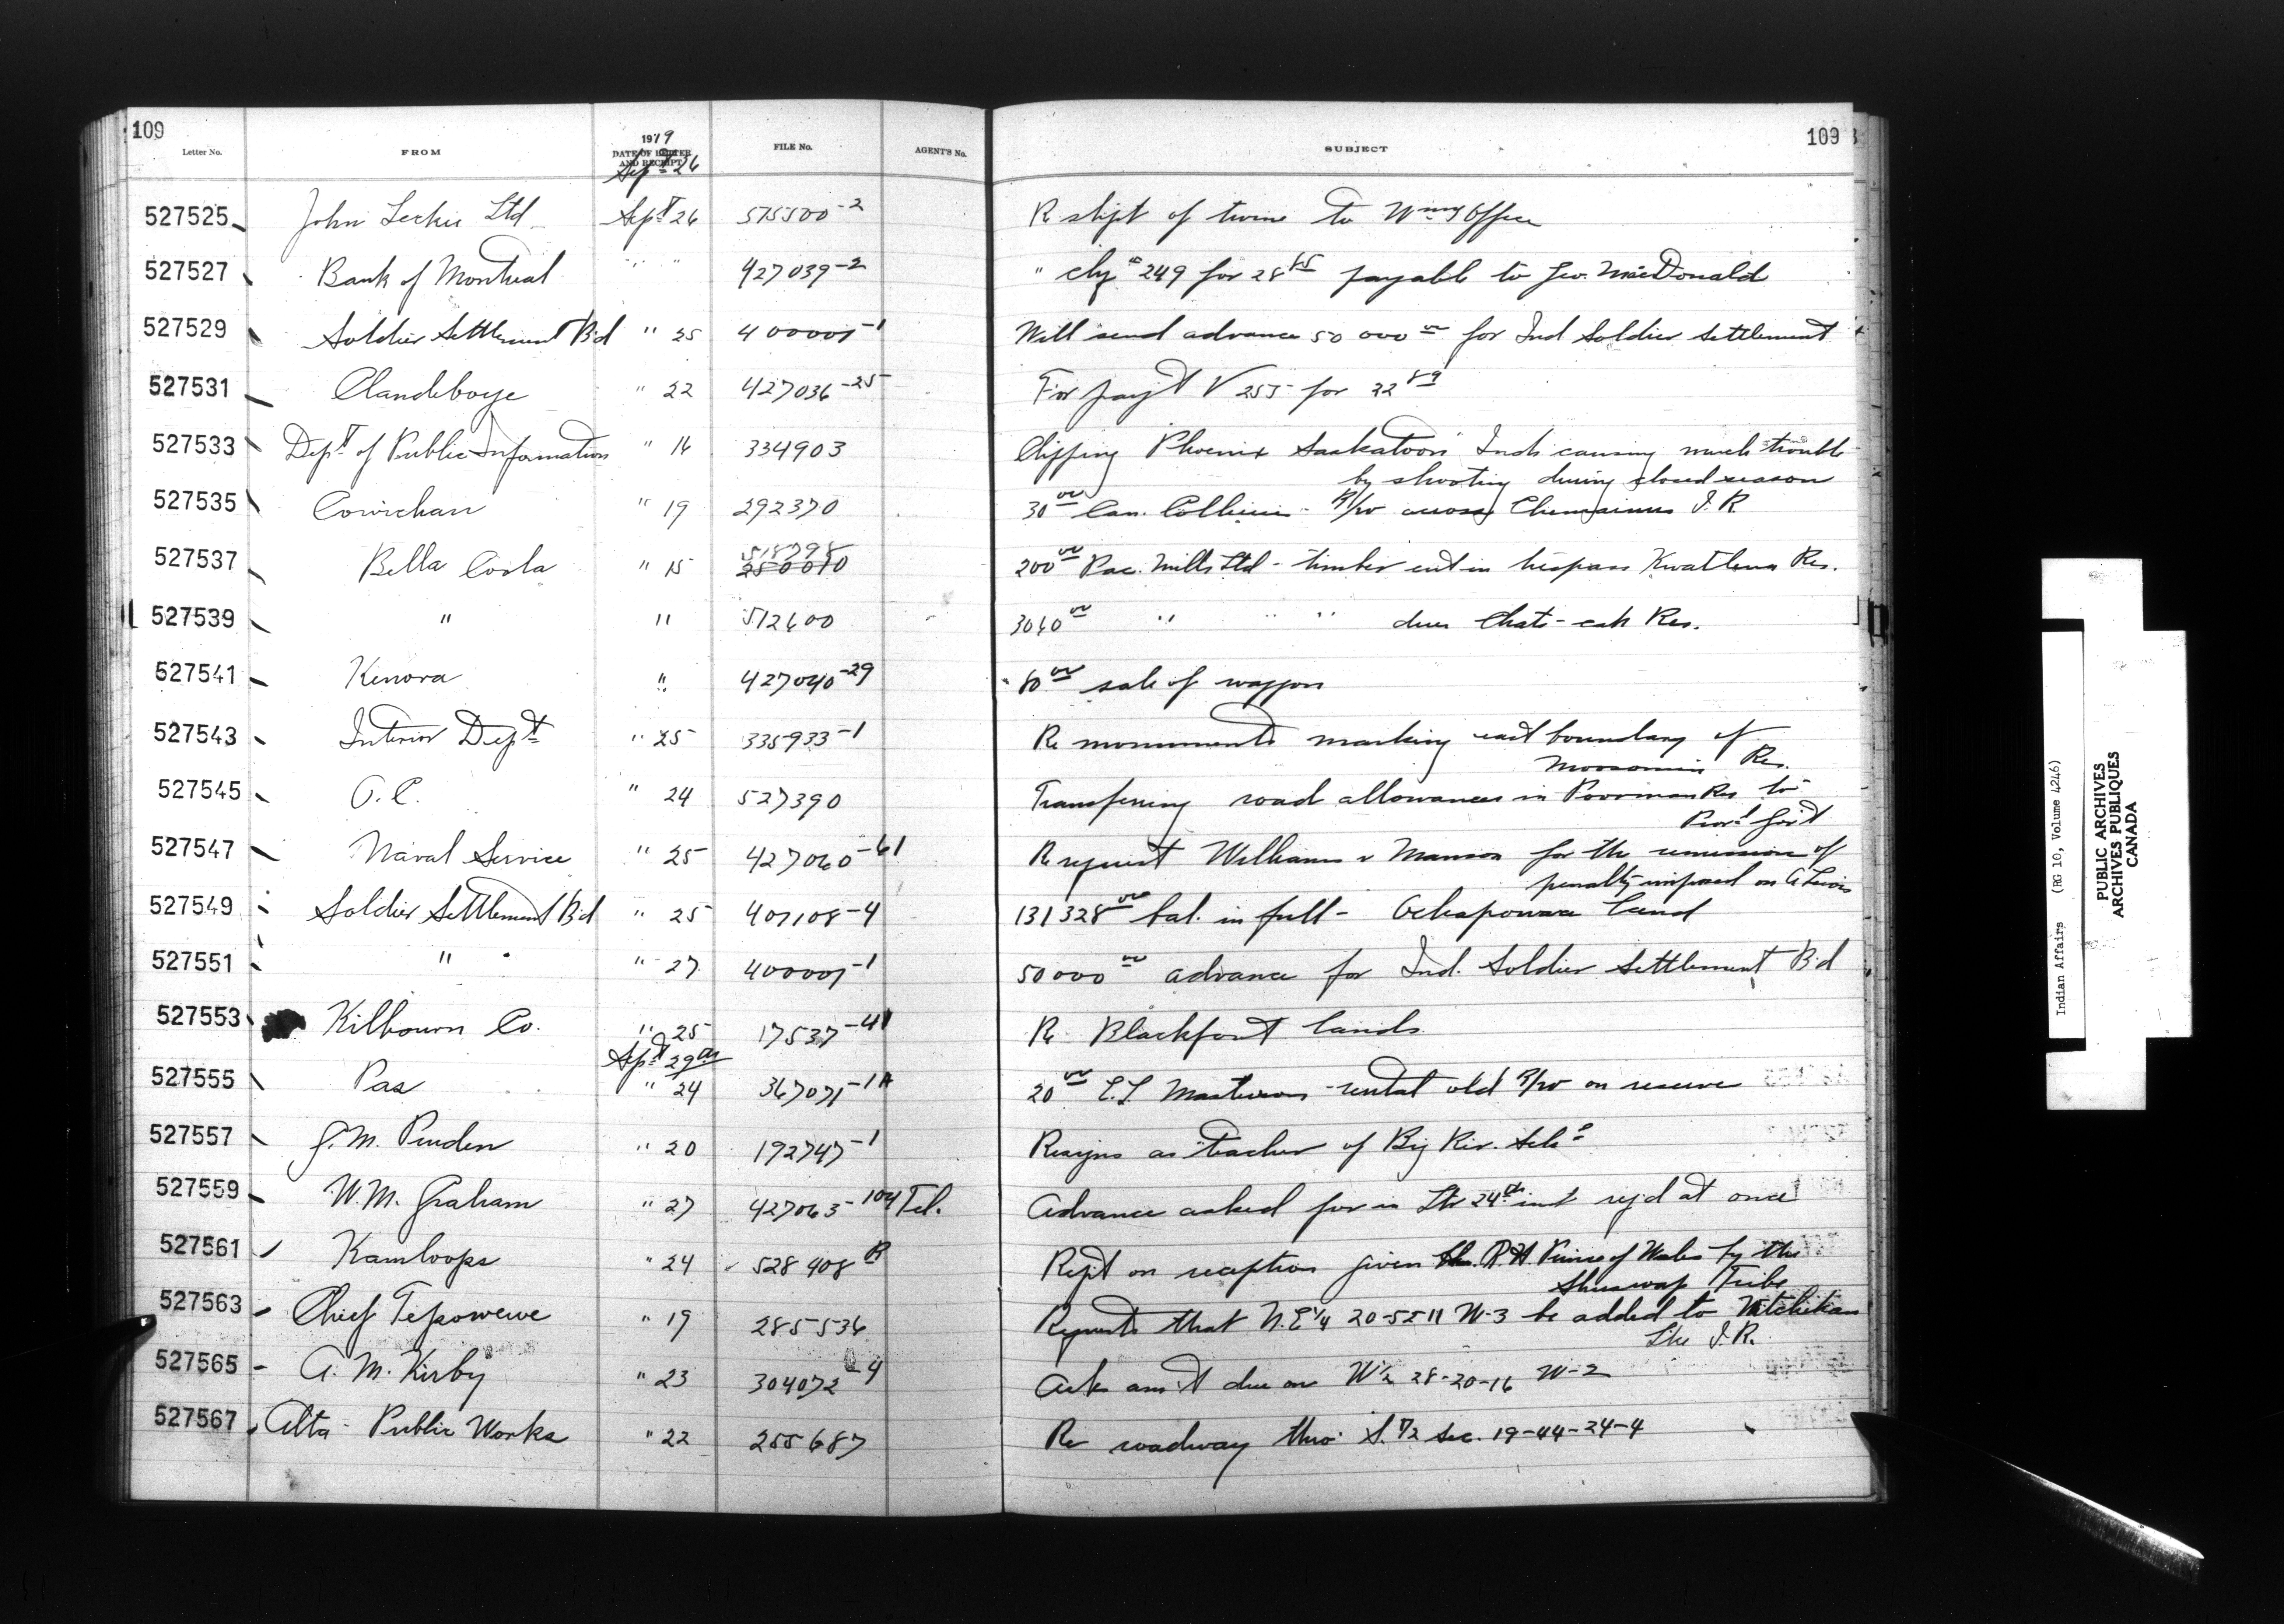 109
109
1919
Letter No. FROM DATE OF LETTER AND RECEIPT FILE No. AGENT'S No. SUBJECT
Sept 26
527525 John Leckie Ltd Sept 26 575500-2 Re shipt of twine to Wmg Office
527527 Bank of Montreal " " 427039-2 " chq # 249 for 28 85 payable to Geo. MacDonald
527529 Soldier Settlement Bd " 25 400001-1 Will send advance 50 000 00 for Ind Soldier Settlement
527531 Clandeboye " 22 427036-25 For payt V 255 for 22 89
527533 Dept of Public Information " 16 334903 Clipping Phoenix Saskatoon Inds causing much trouble
by shooting during closed season
527535 Cowichan " 19 292370 30 00 Can. Collieries - R/W across Chemainus I.R
527537 Bella Coola " 15 518798 Pac. Mills Ltd - timber cut in trespass Kwatlena Res.
250010 200 00
527539 " " 512600 3060 00 " " " dues Chats-cah Res.
527541 Kenora " 427040-29 80 00 sale of waggon
527543 Interior Dept " 25 335933-1 Re monuments marking east boundary of
Moosomin Res.
527545 O.C. " 24 527390 Transferring road allowances in Poorman Res to
Prov'l Gov't
527547 Naval Service " 25 427060-61 Re request Williams v Manson for the remission of
penalty imposed on A Lewis
527549 Soldier Settlement Bd " 25 407108-4 131328 00 bal. in full - Ochapowace Land
527551 " " 27 400001-1 50000 00 advance for Ind. Soldier Settlement Bd
527553 Kilbourn Co. " 25 17537-41 Re Blackfoot lands
Sept 29th
527555 Pas " 24 367071-1A 20 00 rental old R/W on reserve
527557 J.M. Pruden " 20 192747-1 Resigns as teacher of Big Riv. Schl
527559 W.M. Graham " 27 427063-104 Tel. Advance asked for in Ltr 24th inst reqd at once
527561 Kamloops " 24 528408 R Rept on reception given H.R.H. Prince of Wales by the
Shuswap Tribe
527563 Chief Tepowewe " 19 285536 Requests that N.E 1/4 20-52 11 W-3 be added to Witchekan
Lke I.R.
527565 A. M. Kirby " 23 304072-4 Asks am't due on W 1/2 28-20-16 W-2
527567 Alta - Public Works " 22 255687 Re roadway thro' S. 1/2 Sec. 19-44-24-4
Indian Affairs (RG 10, Volume 4246)
PUBLIC ARCHIVES
ARCHIVES PUBLIQUES
CANADA